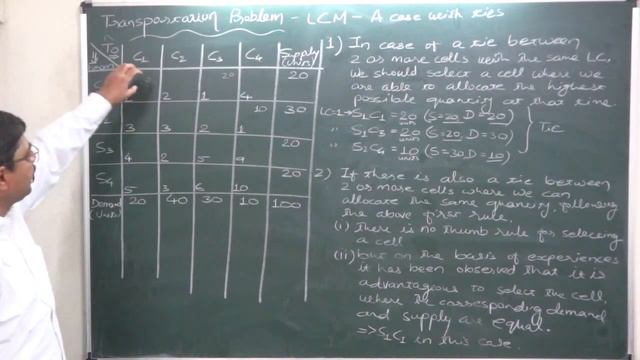 Transportation Problem - LCM - A case with ties
To
C1 C2 C3 C4 Supply (Units)
20 20
2 1 4
10 30
3 3 2 1
S3 20
4 2 5 9
S4 20
5 3 6 10
Demand (Units) 20 40 30 10 100
1) In case of a tie between
2 or more cells with the same LC,
we should select a cell where we
are able to allocate the highest
possible quantity at that time
LC=1→S1C1 = 20 units (S=20, D=20)
" S1C3 = 20 units (S=20, D=30)
" S2C4 = 10 units (S=30, D=10)
Tie
2) If there is also a tie between
2 or more cells where we can
allocate the same quantity, following
the above first rule.
(i) There is no thumb rule for selecting
a cell
(ii) but on the basis of experiences
it has been observed that it is
advantageous to select the cell,
where the corresponding demand
and supply are equal.
=> S1C1 in this case.